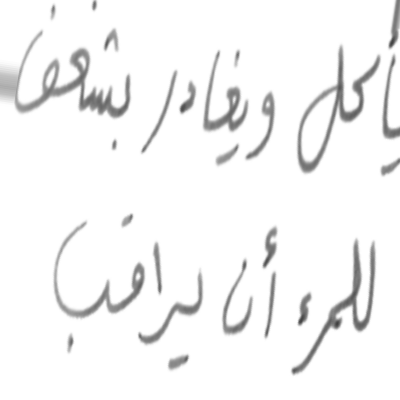 يأكل ويغادر بشغف
للمرء أن يراقب